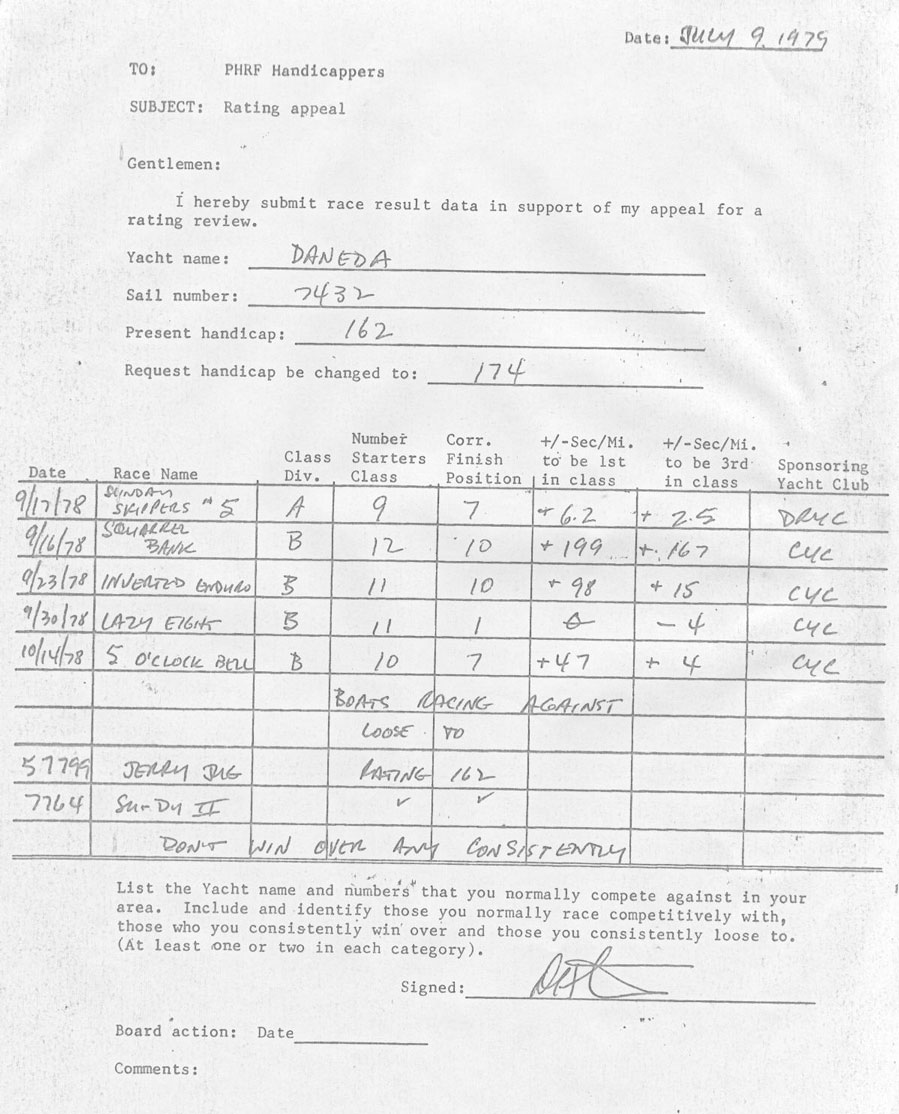 Date: JULY 9, 1979
TO: PHRF Handicappers
SUBJECT: Rating appeal
Gentlemen:
I hereby submit race result data in support of my appeal for a
rating review.
Yacht name: DANEDA
Sail number: 7432
Present handicap: 162
Request handicap be changed to: 174
Date Race Name Class Div. Number Starters Class Corr. Finish Position +/-Sec/Mi. to be 1st in class +/-Sec/Mi. to be 3rd in class Sponsoring Yacht Club
9/17/78 SUNDAY SKIPPERS #5 A 9 7 + 6.2 + 2.5 DRYC
9/16/78 SQUARREL BANK B 12 10 + 199 + 167 CYC
9/23/78 INVERTED ENDURO B 11 10 + 98 + 15 CYC
9/30/78 LAZY EIGHT B 11 1 0 - 4 CYC
10/14/78 5 O'CLOCK BELL B 10 7 +47 + 4 CYC
BOATS RACING AGAINST
LOOSE TO
57799 JERRY JUG RATING 162
7764 Sur-Dy II ✓ ✓
DON'T WIN OVER ANY CONSISTENTLY
List the Yacht name and numbers that you normally compete against in your
area. Include and identify those you normally race competitively with,
those who you consistently win over and those you consistently loose to.
(At least one or two in each category).
Signed:
Board action: Date
Comments: